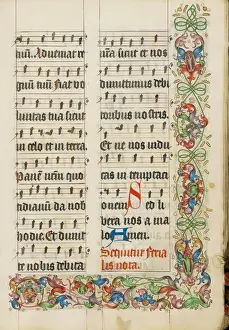 tuū. Adveniat re
gnū tuū. Fiat vo
luntas tua sicut
in celo et in terra.
Panē nr̄m quo
tidianū da nobis
hodie. Et dimit
te nobis debita
nr̄a sicut et nos
dimittimus debi
toribus nostris.
Et ne nos indu
cas in temptaci
onem. Sed li
bera nos a ma
lo. Amen.
Sequitur feria
lis nota.